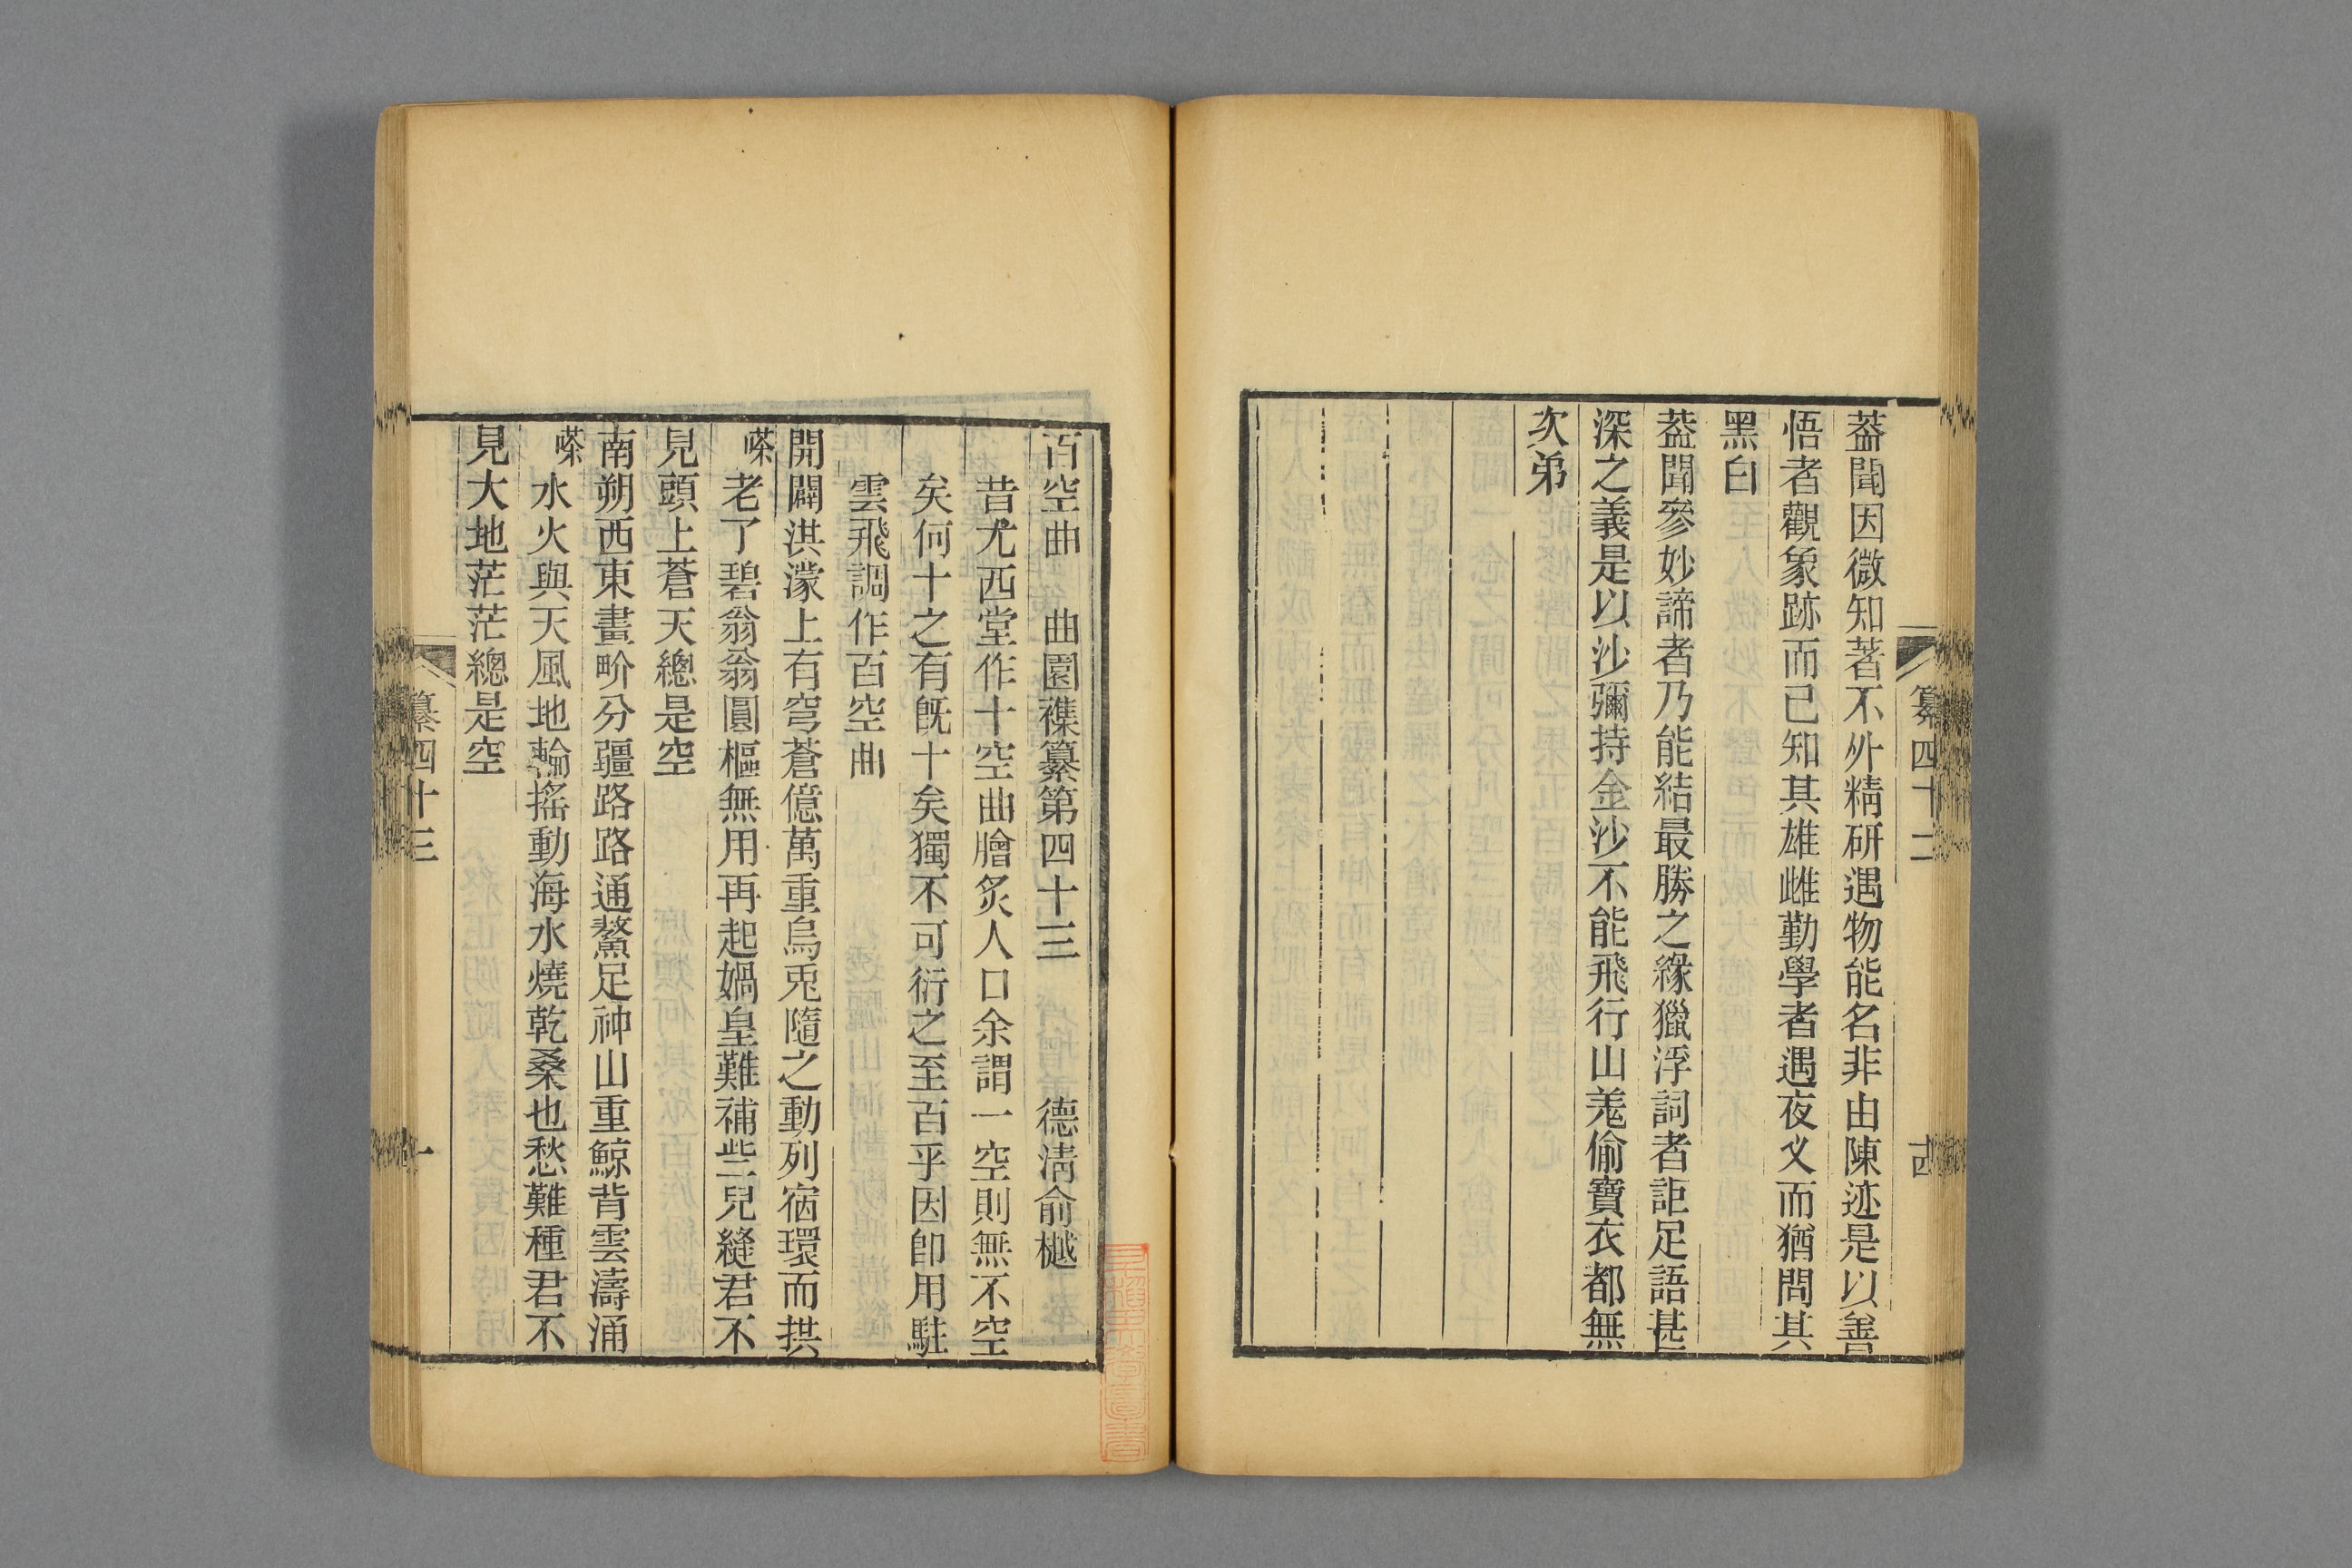 纂四十二
十四
葢聞因微知著不外精研遇物能名非由陳迹是以善
悟者觀象跡而已知其雄雌勤學者遇夜义而猶問其
黑白
葢聞參妙諦者乃能結最勝之緣獵浮詞者詎足語甚
深之義是以沙彌持金沙不能飛行山羗偷寶衣都無
次弟
百空曲 曲園襍纂第四十三 德淸俞樾
昔尤西堂作十空曲膾炙人口余謂一空則無不空
矣何十之有旣十矣獨不可衍之至百乎因卽用駐
雲飛調作百空曲
開闢洪濛上有穹蒼億萬重烏兎隨之動列宿環而拱
嗏老了碧翁翁圓樞無用再起媧皇難補些兒縫君不
見頭上蒼天總是空
南朔西東畫畍分疆路路通鰲足神山重鯨背雲濤涌
嗏水火與天風地輪搖動海水燒乾桑也愁難種君不
見大地茫茫總是空
纂四十三
一